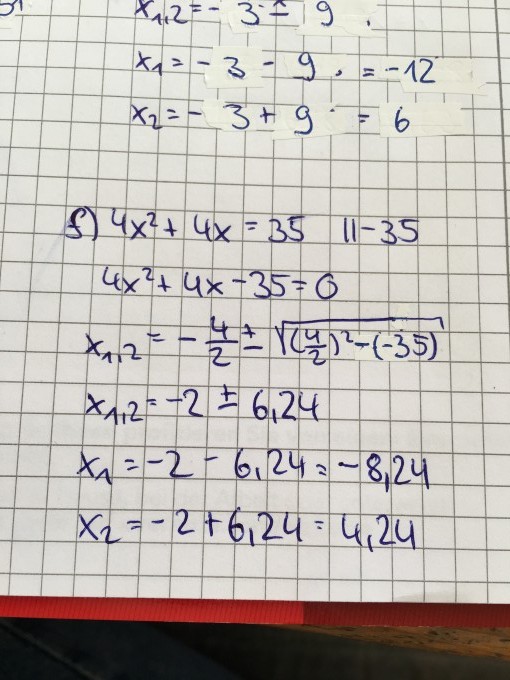 x₁,₂ = - 3 ± 9
x₁ = - 3 - 9 . = -12
x₂ = - 3 + 9 = 6
f) 4x² + 4x = 35 ||-35
4x² + 4x - 35 = 0
x₁,₂ = - 4/2 ± √((4/2)² - (-35))
x₁,₂ = -2 ± 6,24
x₁ = -2 - 6,24 = -8,24
x₂ = -2 + 6,24 = 4,24